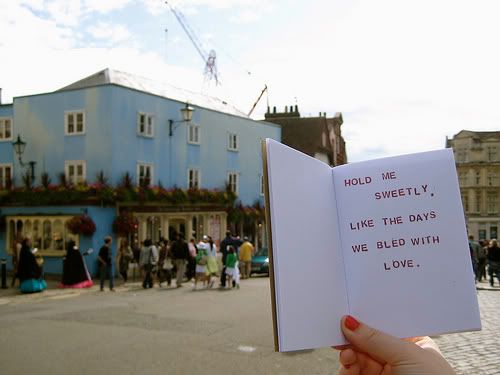 HOLD ME
SWEETLY,
LIKE THE DAYS
WE BLED WITH
LOVE.